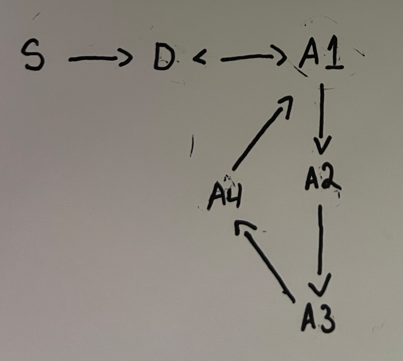 S → D <-> A1
A4 A2
A3